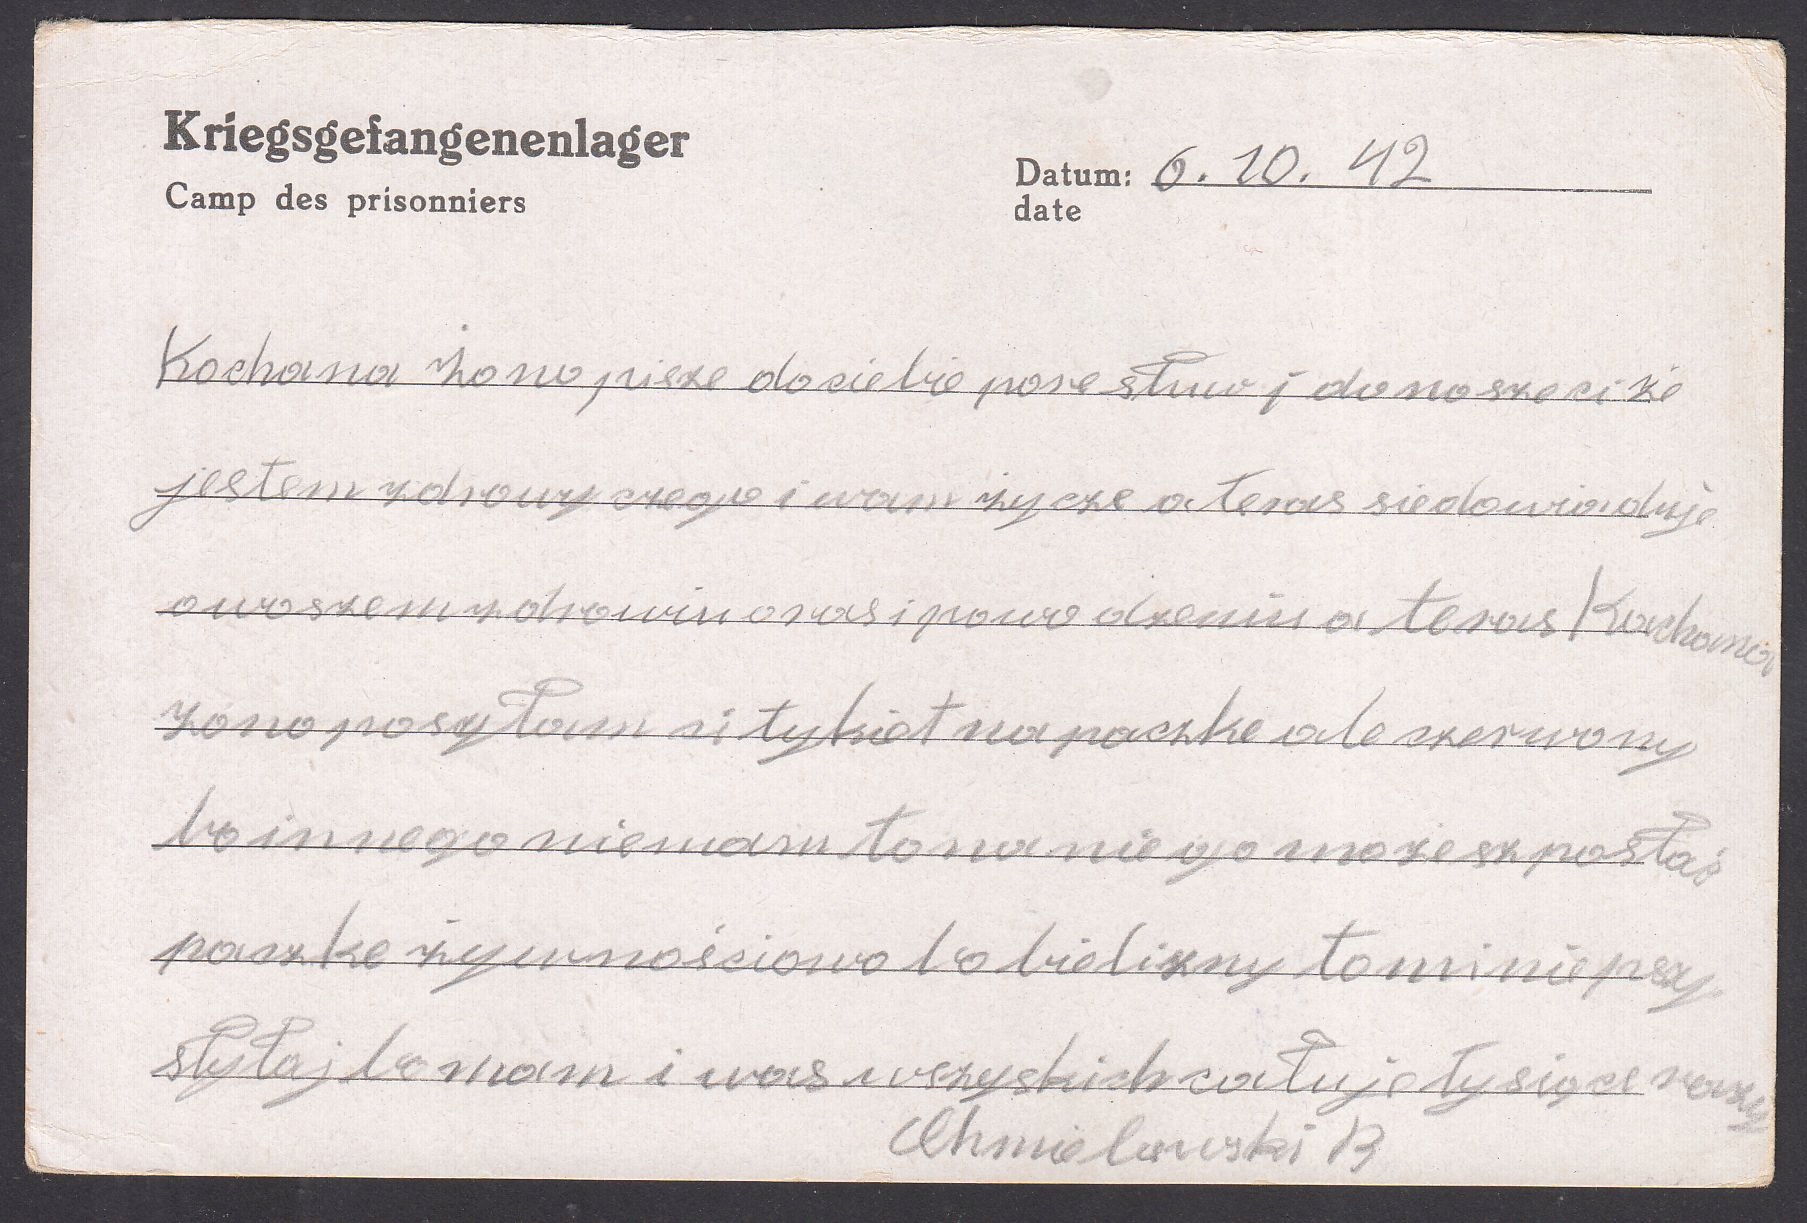 Kriegsgefangenenlager
Camp des prisonniers
Datum: 6. 10. 42
date
Kochana żono pisze dociebie pore słuw j donosze ci że
jestem zdrowy czego i wam życze a teras siedowiaduje
owoszem zdrowiu oras i powodzeniu a teras Kochana
żono posyłam ci tykiet na paczke ale czerwony
bo innego niemam to na niego możesz posłać
paczke żywnościowo bo bielizny to mi nie pszy
słyłaj bo mam i was wszyskich całuje tysiące razy
Chmielewski B